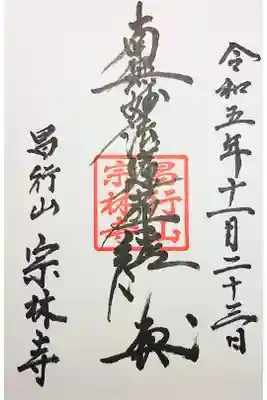 令和五年十一月二十三日
南無妙法蓮華経
昌行山
宗林寺
昌行山 宗林寺